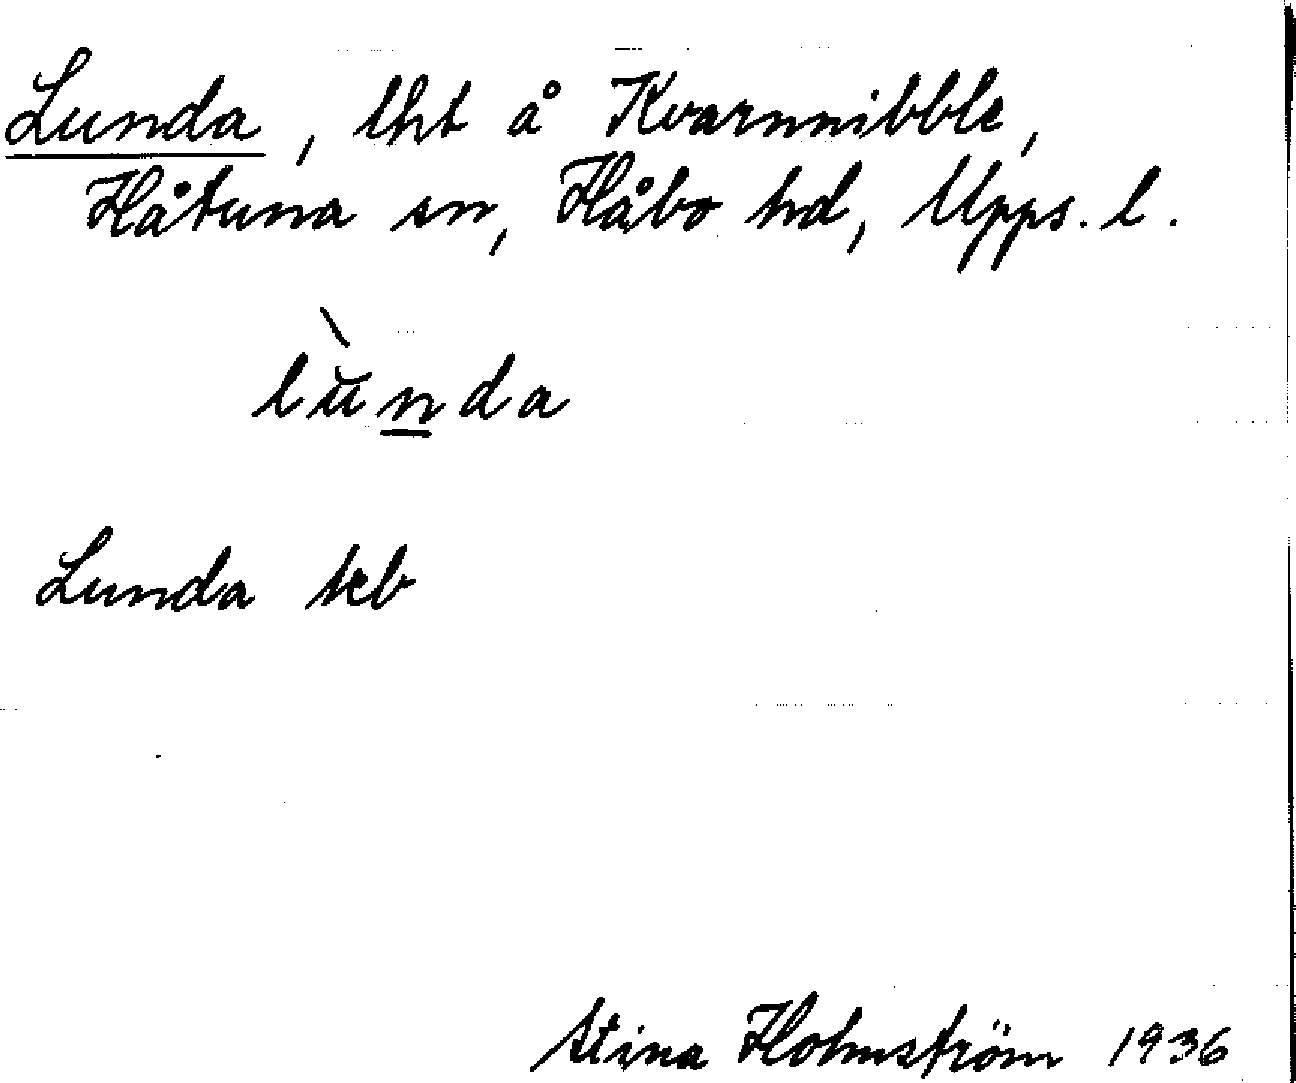 Lunda, lht å Kvarnnibble,
Håtuna sn, Håbo hd, Upps. l.
lù̆n̲da
Lunda keb
Stina Holmström 1936